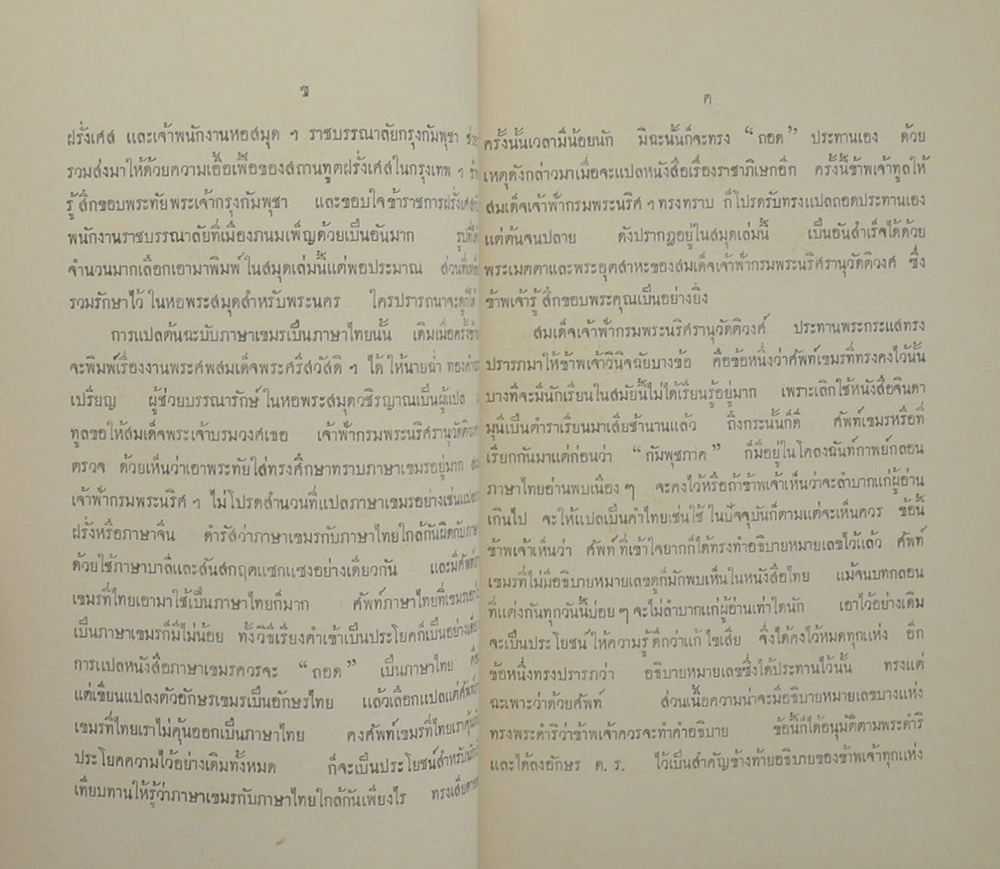 ข
ฝรั่งเศส และเจ้าพนักงานหอสมุด ฯ ราชบรรณาลัยกรุงกัมพุชา
รวมส่งมาให้ด้วยความเอื้อเฟื้อของสถานทูตฝรั่งเศสในกรุงเทพ ฯ
รู้สึกขอบพระทัยพระเจ้ากรุงกัมพุชา และขอบใจข้าราชการฝรั่งเศส
พนักงานราชบรรณาลัยที่เมืองภนมเพ็ญด้วยเป็นอันมาก
จำนวนมากเลือกเอามาพิมพ์ในสมุดเล่มนี้แต่พอประมาณ
รวมรักษาไว้ในหอพระสมุดสำหรับพระนคร ใครปรารถนาจะ
การแปลต้นฉะบับภาษาเขมรเป็นภาษาไทยนั้น เดิมเมื่อครั้ง
จะพิมพ์เรื่องงานพระศพสมเด็จพระศรีสวัสดิ ฯ ได้ให้นายฉ่ำ
เปรียญ ผู้ช่วยบรรณารักษ์ในหอพระสมุดวชิรญาณเป็นผู้แปล
ทูลขอให้สมเด็จพระเจ้าบรมวงศเธอ เจ้าฟ้ากรมพระนริศรานุวัดติวงศ
ตรวจ ด้วยเห็นว่าเอาพระทัยใส่ทรงศึกษาทราบภาษาเขมรอยู่มาก
เจ้าฟ้ากรมพระนริศ ฯ ไม่โปรดสำนวนที่แปลภาษาเขมรอย่างเช่น
ฝรั่งหรือภาษาจีน ดำรัสว่าภาษาเขมรกับภาษาไทยใกล้กันผิดกับ
ด้วยใช้ภาษาบาลีและสันสกฤตแซกแซงอย่างเดียวกัน
เขมรที่ไทยเอามาใช้เป็นภาษาไทยก็มาก ศัพท์ภาษาไทยที่เขมร
เป็นภาษาเขมรก็มีไม่น้อย ทั้งวิธีเรียงคำเข้าเป็นประโยคก็เป็น
การแปลหนังสือภาษาเขมรควรจะ “ ถอด ” เป็นภาษาไทย คือ
แต่เขียนแปลงตัวอักษรเขมรเป็นอักษรไทย แล้วเลือกแปลแต่
เขมรที่ไทยเราไม่คุ้นออกเป็นภาษาไทย คงศัพท์เขมรที่ไทยเรา
ประโยคความไว้อย่างเดิมทั้งหมด ก็จะเป็นประโยชน์สำหรับ
เทียบทานให้รู้ว่าภาษาเขมรกับภาษาไทยใกล้กันเพียงไร
ค
ครั้งนั้นเวลามีน้อยนัก มิฉะนั้นก็จะทรง “ ถอด ” ประทานเอง ด้วย
เหตุดังกล่าวมาเมื่อจะแปลหนังสือเรื่องราชาภิเษกอีก ครั้งนี้ข้าพเจ้าทูลให้
สมเด็จเจ้าฟ้ากรมพระนริศ ฯ ทรงทราบ ก็โปรดรับทรงแปลถอดประทานเอง
แต่ต้นจนปลาย ดังปรากฏอยู่ในสมุดเล่มนี้ เป็นอันสำเร็จได้ด้วย
พระเมตตาและพระอุตสาหะของสมเด็จเจ้าฟ้ากรมพระนริศรานุวัดติวงศ์ ซึ่ง
ข้าพเจ้ารู้สึกขอบพระคุณเป็นอย่างยิ่ง
สมเด็จเจ้าฟ้ากรมพระนริศรานุวัดติวงศ์ ประทานพระกระแสทรง
ปรารภมาให้ข้าพเจ้าวินิจฉัยบางข้อ คือข้อหนึ่งว่าศัพท์เขมรที่ทรงคงไว้นั้น
บางทีจะมีนักเรียนในสมัยนี้ไม่ได้เรียนรู้อยู่มาก เพราะเลิกใช้หนังสือจินดา
มุนีเป็นตำราเรียนมาเสียช้านานแล้ว ถึงกระนั้นก็ดี ศัพท์เขมรหรือที่
เรียกกันมาแต่ก่อนว่า “ กัมพุชภาค ” ก็มีอยู่ในโคลงฉันท์กาพย์กลอน
ภาษาไทยอ่านพบเนือง ๆ จะคงไว้หรือถ้าข้าพเจ้าเห็นว่าจะลำบากแก่ผู้อ่าน
เกินไป จะให้แปลเป็นคำไทยเช่นใช้ในปัจจุบันก็ตามแต่จะเห็นควร ข้อนี้
ข้าพเจ้าเห็นว่า ศัพท์ที่เข้าใจยากก็ได้ทรงทำอธิบายหมายเลขไว้แล้ว ศัพท์
เขมรที่ไม่มีอธิบายหมายเลขดูก็มักพบเห็นในหนังสือไทย แม้จนบทกลอน
ที่แต่งกันทุกวันนี้บ่อย ๆ จะไม่ลำบากแก่ผู้อ่านเท่าใดนัก เอาไว้อย่างเดิม
จะเป็นประโยชน์ให้ความรู้ดีกว่าแก้ไขเสีย จึ่งได้คงไว้หมดทุกแห่ง อีก
ข้อหนึ่งทรงปรารภว่า อธิบายหมายเลขซึ่งได้ประทานไว้นั้น ทรงแต่
ฉะเพาะว่าด้วยศัพท์ ส่วนเนื้อความน่าจะมีอธิบายหมายเลขบางแห่ง
ทรงพระดำริว่าข้าพเจ้าควรจะทำคำอธิบาย ข้อนี้ก็ได้อนุมัติตามพระดำริ
และได้ลงอักษร ด. ร. ไว้เป็นสำคัญข้างท้ายอธิบายของข้าพเจ้าทุกแห่ง